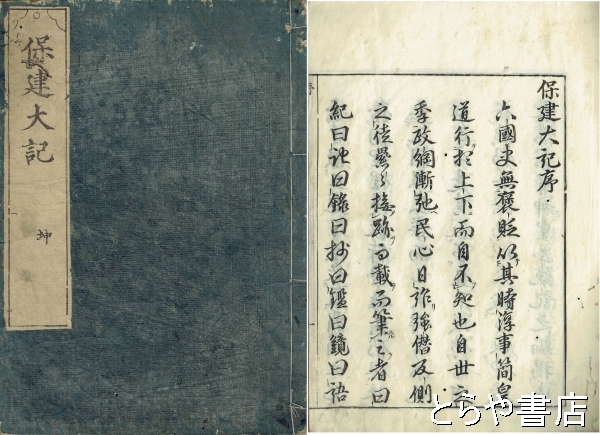 保建大記
坤
保建大記序
六國史無褒貶以其時淳事簡皇
道行於上下而自不知也自世之
季政綱漸弛民心日詐強僭反側
之徒疊跡而載而筆之者曰
紀曰記曰錄曰抄曰鑑曰鏡曰語
とらや書店